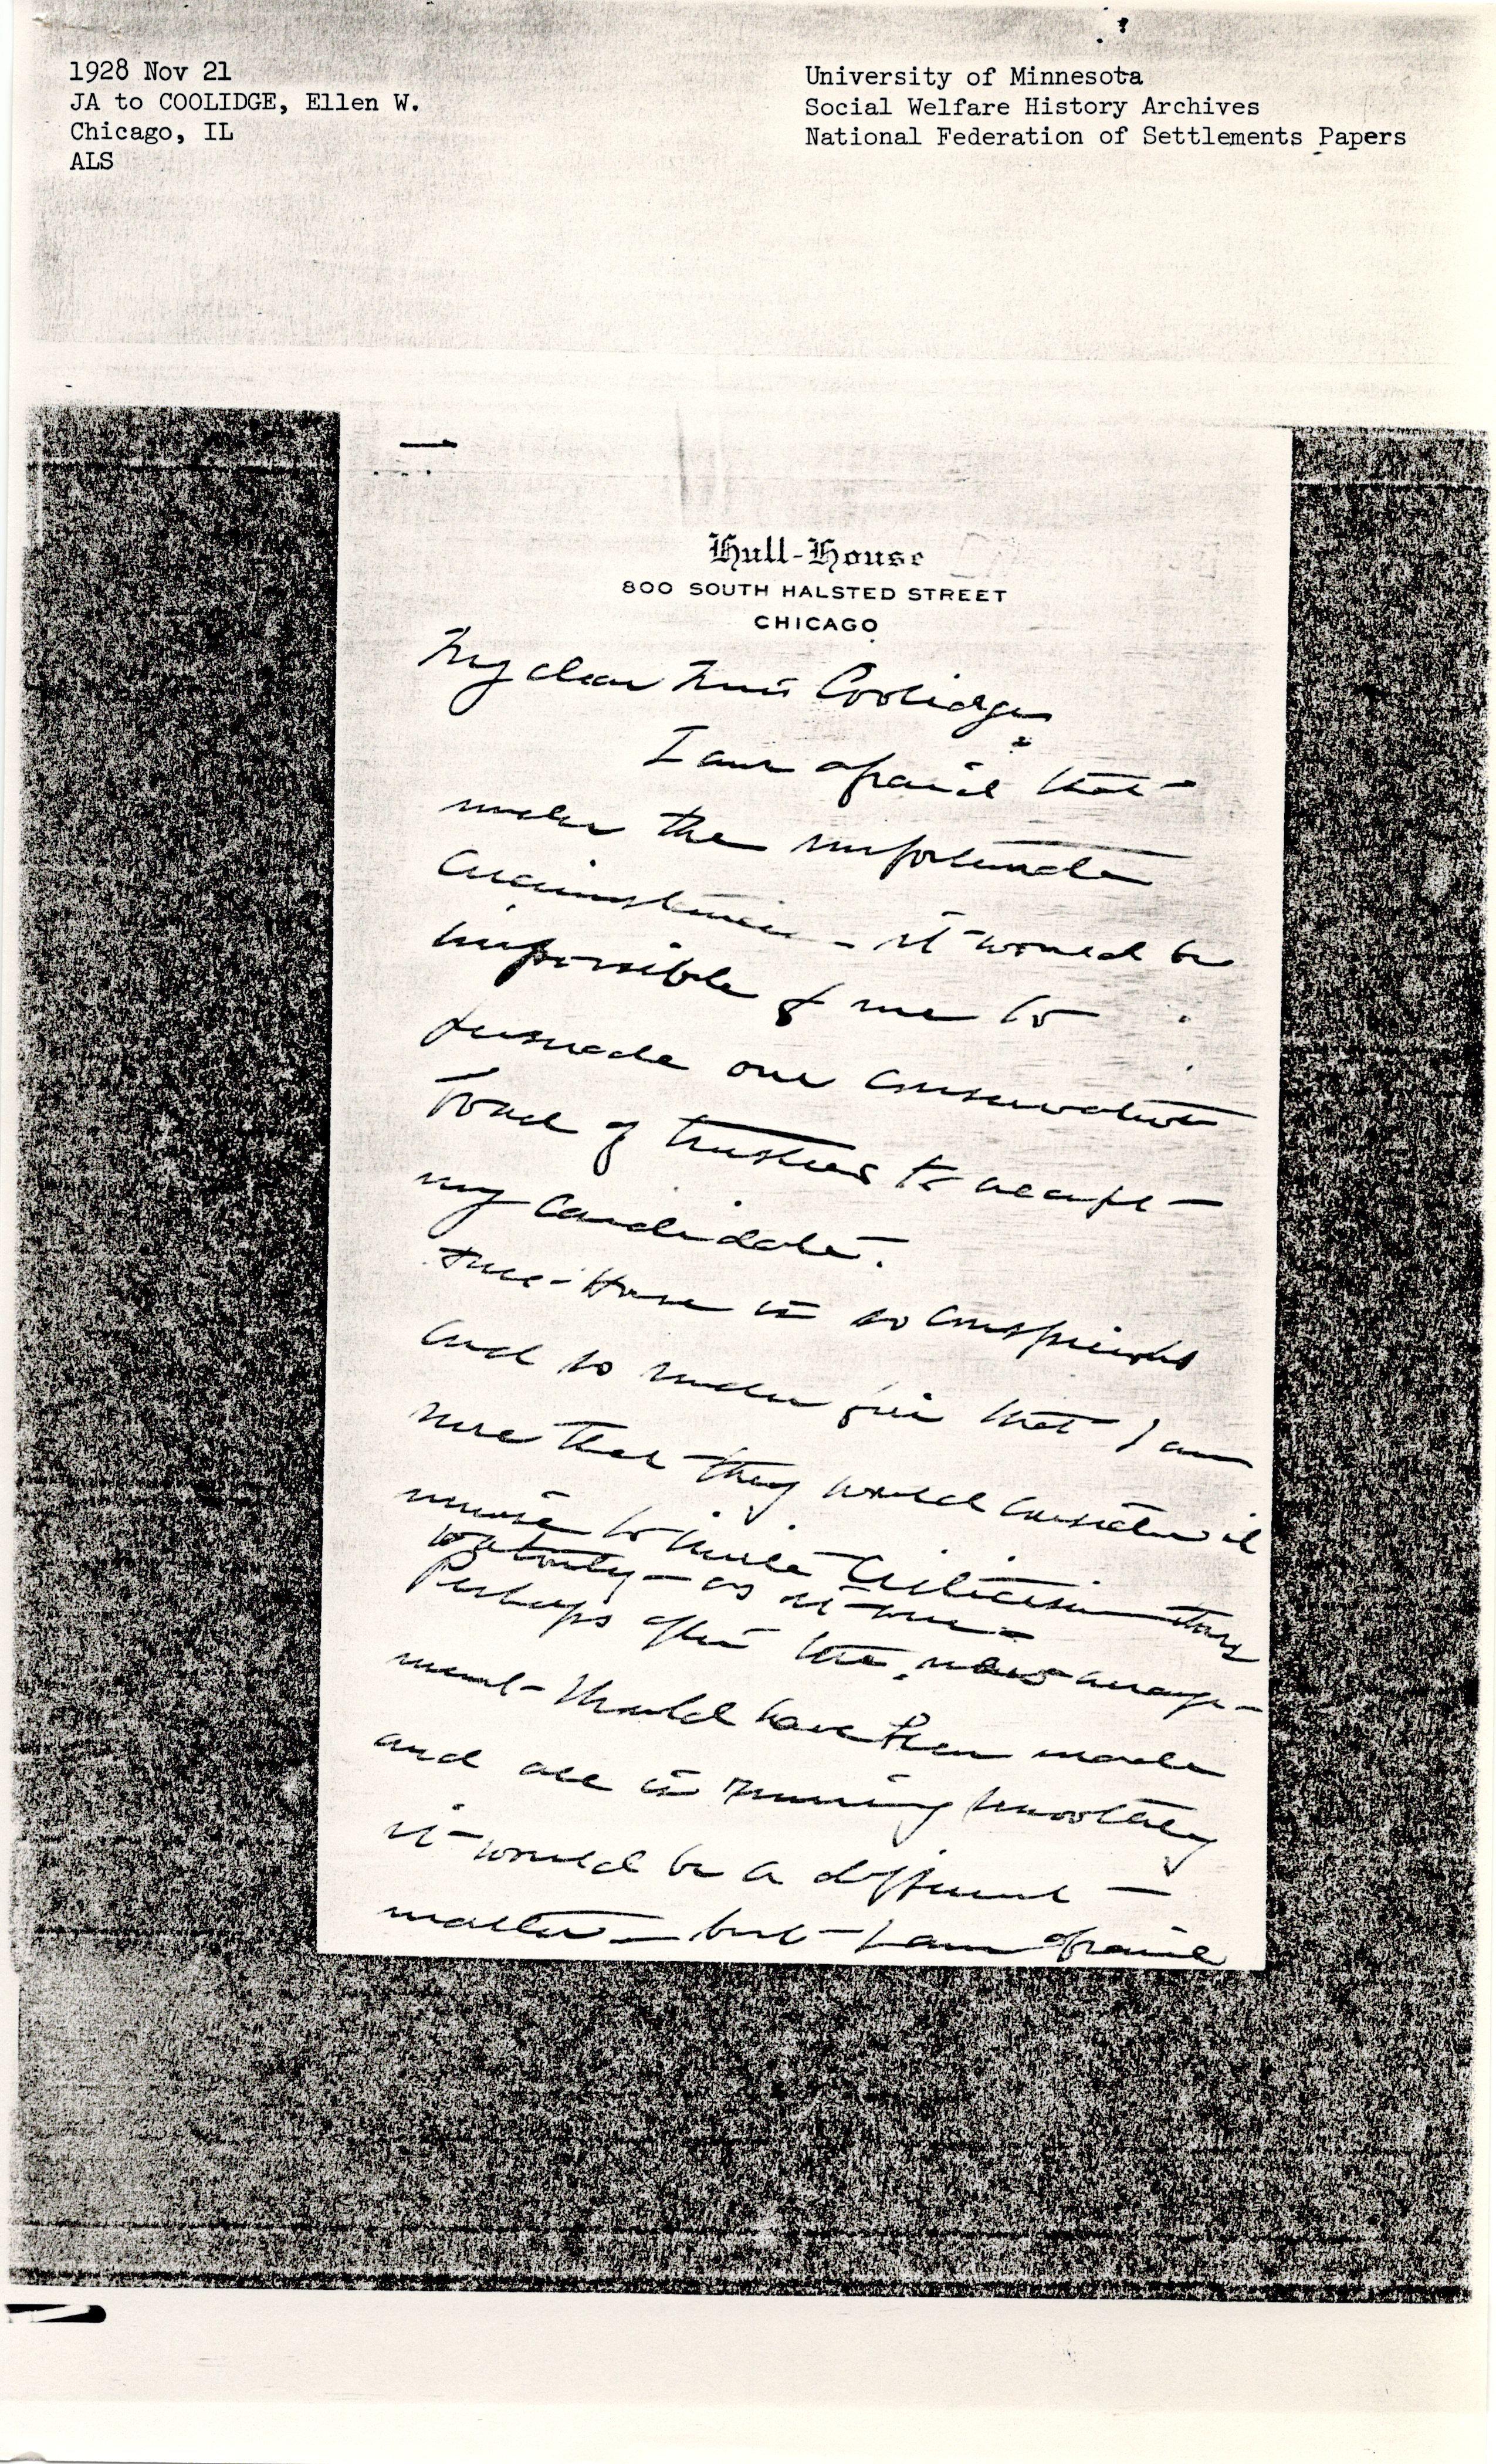 1928 Nov 21
JA to COOLIDGE, Ellen W.
Chicago, IL
ALS
University of Minnesota
Social Welfare History Archives
National Federation of Settlements Papers
Hull-House
800 SOUTH HALSTED STREET
CHICAGO
My dear Miss Coolidge
I am afraid that
under the unfortunate
circumstances - it would be
impossible for me to
persuade our conservative
board of trustees to accept
my candidate.
Hull-House is so conspicuous
and so under fire that I am
sure that they would consider it
unwise to invite criticism
- as it were -
Perhaps after the new arrange-
ment should have been made
and all is running smoothly
it would be a different
matter - but I am afraid